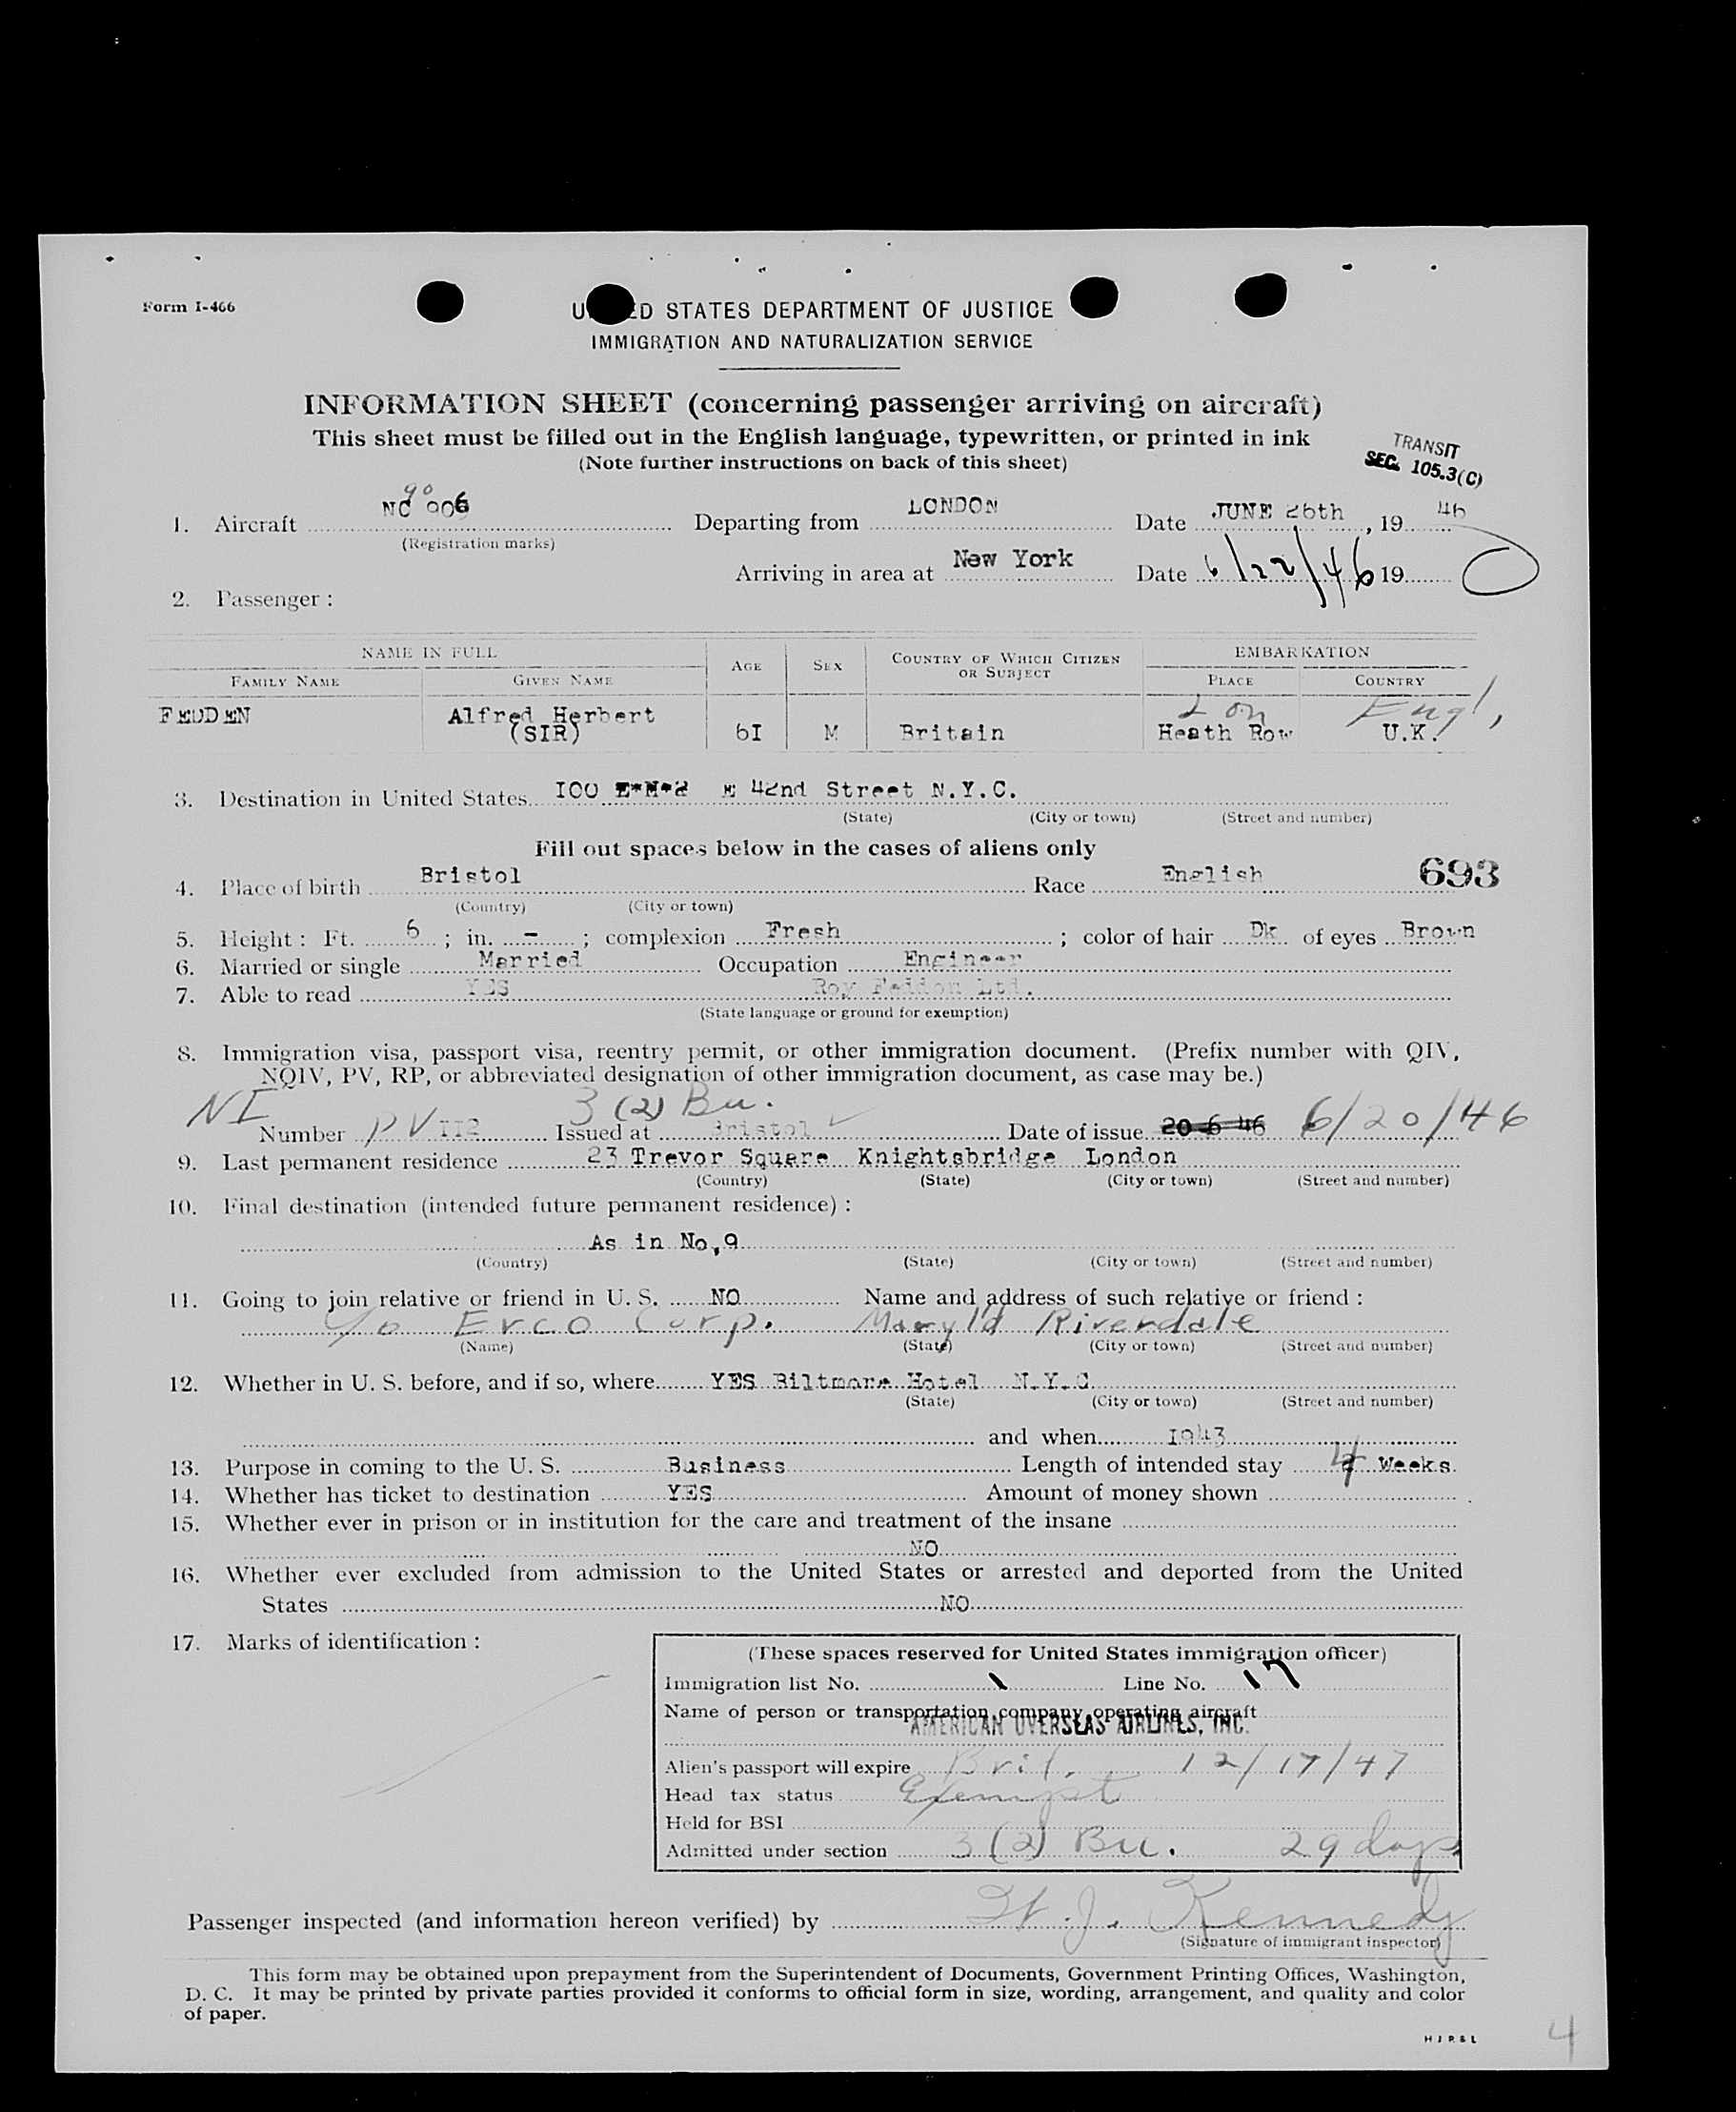 Form I-466
UNITED STATES DEPARTMENT OF JUSTICE
IMMIGRATION AND NATURALIZATION SERVICE
INFORMATION SHEET (concerning passenger arriving on aircraft)
This sheet must be filled out in the English language, typewritten, or printed in ink
(Note further instructions on back of this sheet)
TRANSIT
SEC. 105.3(C)
1. Aircraft NC 90 906 Departing from LONDON Date JUNE 26th, 19 46
(Registration marks)
Arriving in area at New York Date 6/22/46 19
2. Passenger :
NAME IN FULL AGE SEX COUNTRY OF WHICH CITIZEN OR SUBJECT EMBARKATION
FAMILY NAME GIVEN NAME PLACE COUNTRY
FEDDEN Alfred Herbert (SIR) 6I M Britain Lon Heath Row Engl, U.K.
3. Destination in United States I00 E 42nd Street N.Y.C.
(State) (City or town) (Street and number)
Fill out spaces below in the cases of aliens only
4. Place of birth Bristol Race English 693
(Country) (City or town)
5. Height : Ft. 6 ; in. - ; complexion Fresh ; color of hair Dk of eyes Brown
6. Married or single Married Occupation Engineer
7. Able to read YES Roy Fedden Ltd.
(State language or ground for exemption)
8. Immigration visa, passport visa, reentry permit, or other immigration document. (Prefix number with QIV,
NQIV, PV, RP, or abbreviated designation of other immigration document, as case may be.)
NI 3 (2) Bu.
Number PV II2 Issued at Bristol Date of issue 20 6 46 6/20/46
9. Last permanent residence 23 Trevor Square Knightsbridge London
(Country) (State) (City or town) (Street and number)
10. Final destination (intended future permanent residence) :
As in No,9
(Country) (State) (City or town) (Street and number)
11. Going to join relative or friend in U. S. NO Name and address of such relative or friend :
c/o Erco Corp. Maryl'd Riverdale
(Name) (State) (City or town) (Street and number)
12. Whether in U. S. before, and if so, where YES Biltmore Hotel N.Y.C
(State) (City or town) (Street and number)
and when I943
13. Purpose in coming to the U. S. Business Length of intended stay 4 Weeks
14. Whether has ticket to destination YES Amount of money shown
15. Whether ever in prison or in institution for the care and treatment of the insane
NO
16. Whether ever excluded from admission to the United States or arrested and deported from the United
States NO
17. Marks of identification :
(These spaces reserved for United States immigration officer)
Immigration list No. 1 Line No. 17
Name of person or transportation company operating aircraft
AMERICAN OVERSEAS AIRLINES, INC.
Alien's passport will expire Brit. 12/17/47
Head tax status Exempt
Held for BSI
Admitted under section 3 (2) Bu. 29 days
Passenger inspected (and information hereon verified) by W. J. Kennedy
(Signature of immigrant inspector)
This form may be obtained upon prepayment from the Superintendent of Documents, Government Printing Offices, Washington,
D. C. It may be printed by private parties provided it conforms to official form in size, wording, arrangement, and quality and color
of paper.
H J R & L
4